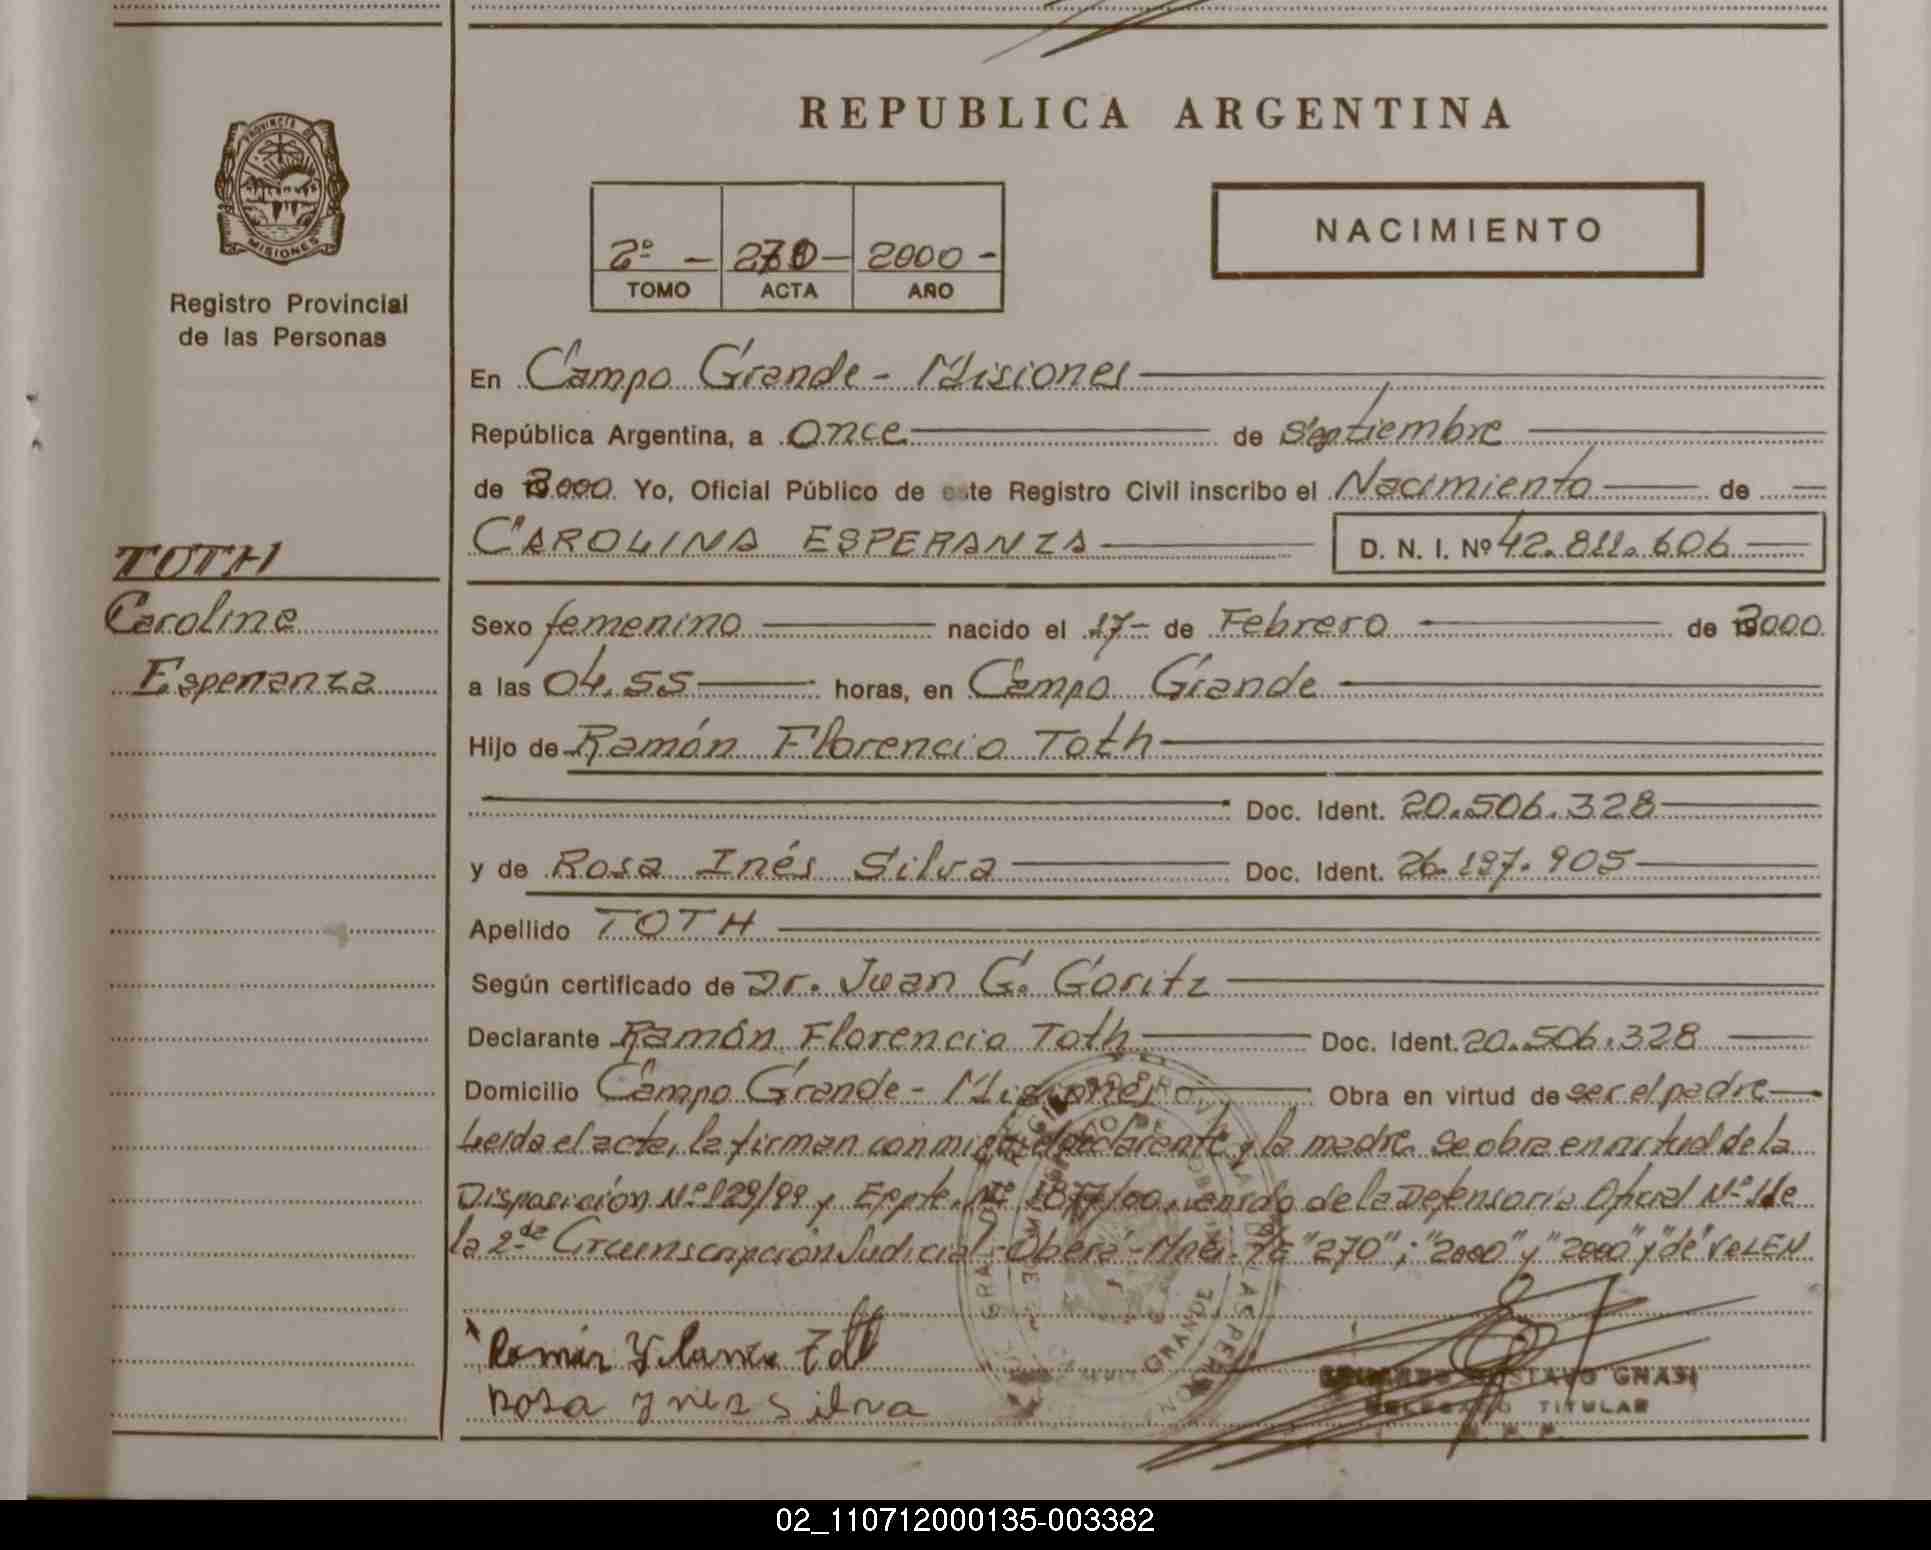 REPUBLICA ARGENTINA
PROVINCIA DE
MISIONES
Registro Provincial
de las Personas
2º - 270 - 2000 -
TOMO ACTA AÑO
NACIMIENTO
En Campo Grande - Misiones
República Argentina, a once de Septiembre
de 2000. Yo, Oficial Público de este Registro Civil inscribo el Nacimiento de
CAROLINA ESPERANZA D. N. I. Nº 42.811.606
TOTH
Carolina
Esperanza
Sexo femenino nacido el 17- de Febrero de 2000.
a las 04.55 horas, en Campo Grande
Hijo de Ramón Florencio Toth
Doc. Ident. 20.506.328
y de Rosa Inés Silva Doc. Ident. 26.197.905
Apellido TOTH
Según certificado de Dr. Juan G. Goritz
Declarante Ramón Florencio Toth Doc. Ident. 20.506.328
Domicilio Campo Grande - Misiones Obra en virtud de ser el padre
Leída el acta, la firman conmigo el declarante y la madre. Se obra en virtud de la
Disposición Nº 129/99 y Expte. Nº 1877/00, venido de la Defensoría Oficial Nº 1 de
la 2da Circunscripción Judicial - Oberá - Mnes. "270"; "2000" y "2000" y "de" VALEN
Ramón Toth
Rosa ynes silva
GUSTAVO GNASI
DELEGADO TITULAR
R. P. P.
02_110712000135-003382